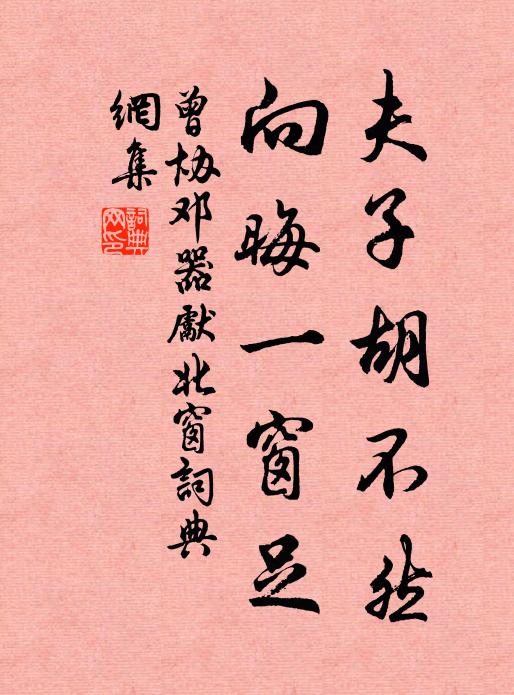 夫子胡不然
向晦一窗足
曾协邓器獻北窗詞典
網集
詞典
网印